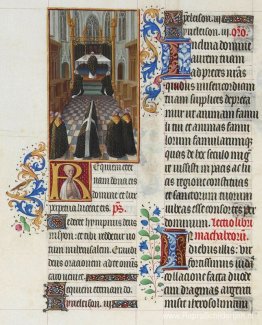 Requiem eter
nam dona eis
domine et lux
perpetua luceat eis. ps
Te decet hympnus deus
in syon: et tibi reddetur uo
tum in iherusalem. Exaudi
deus orationem ad te omnis
caro veniet.
Requiem eternam do.
Kyrieleson. iij
Xpeleison. iij
Kyrieleson. iij oro.
Inclina domine
aurem tuam
ad preces nras
quibus misericordiam
tuam supplices depreca
mur ut animas famu
lorum famularumque
quas de hoc seculo
re iussisti in pacis ac lu
cis regione constituas
et sanctorum tuorum
iubeas esse consortes per
dominum. Lectio libri
machabeorum.
In diebus illis: vir
fortissimus iudas
collatione facta duode
cim dragmas argenti
misit iherosolimam